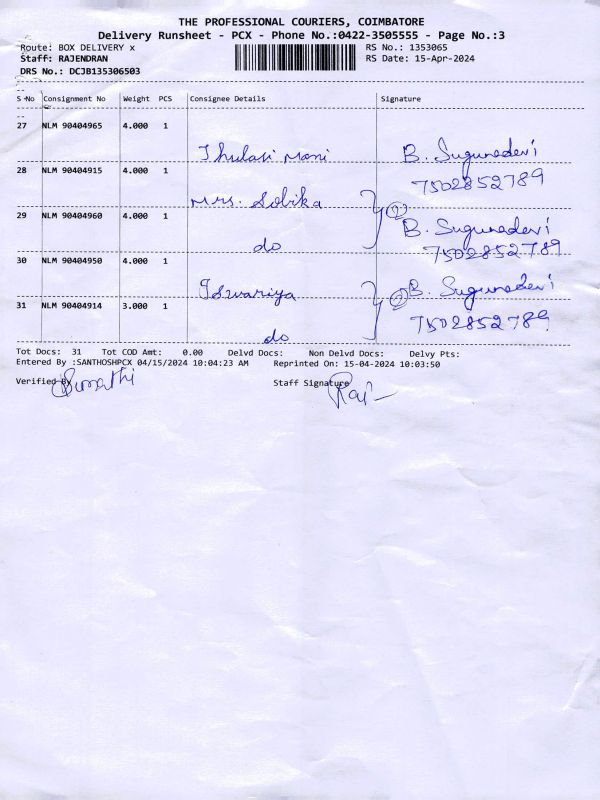 THE PROFESSIONAL COURIERS, COIMBATORE
Delivery Runsheet - PCX - Phone No.:0422-3505555 - Page No.:3
Route: BOX DELIVERY x
RS No.: 1353065
Staff: RAJENDRAN
RS Date: 15-Apr-2024
DRS No.: DCJB135306503
S No Consignment No Weight PCS Consignee Details Signature
27 NLM 90404965 4.000 1
Thulasi mani B. Sugunadevi
7502852789
28 NLM 90404915 4.000 1
Mrs. Sobika
29 NLM 90404960 4.000 1
do } ② B. Sugunadevi
7502852789
30 NLM 90404950 4.000 1
Iswariya } ② B. Sugunadevi
31 NLM 90404914 3.000 1
7502852789
do
Tot Docs: 31 Tot COD Amt: 0.00 Delvd Docs: Non Delvd Docs: Delvy Pts:
Entered By :SANTHOSHPCX 04/15/2024 10:04:23 AM Reprinted On: 15-04-2024 10:03:50
Verified By Sumathi Staff Signature Raj